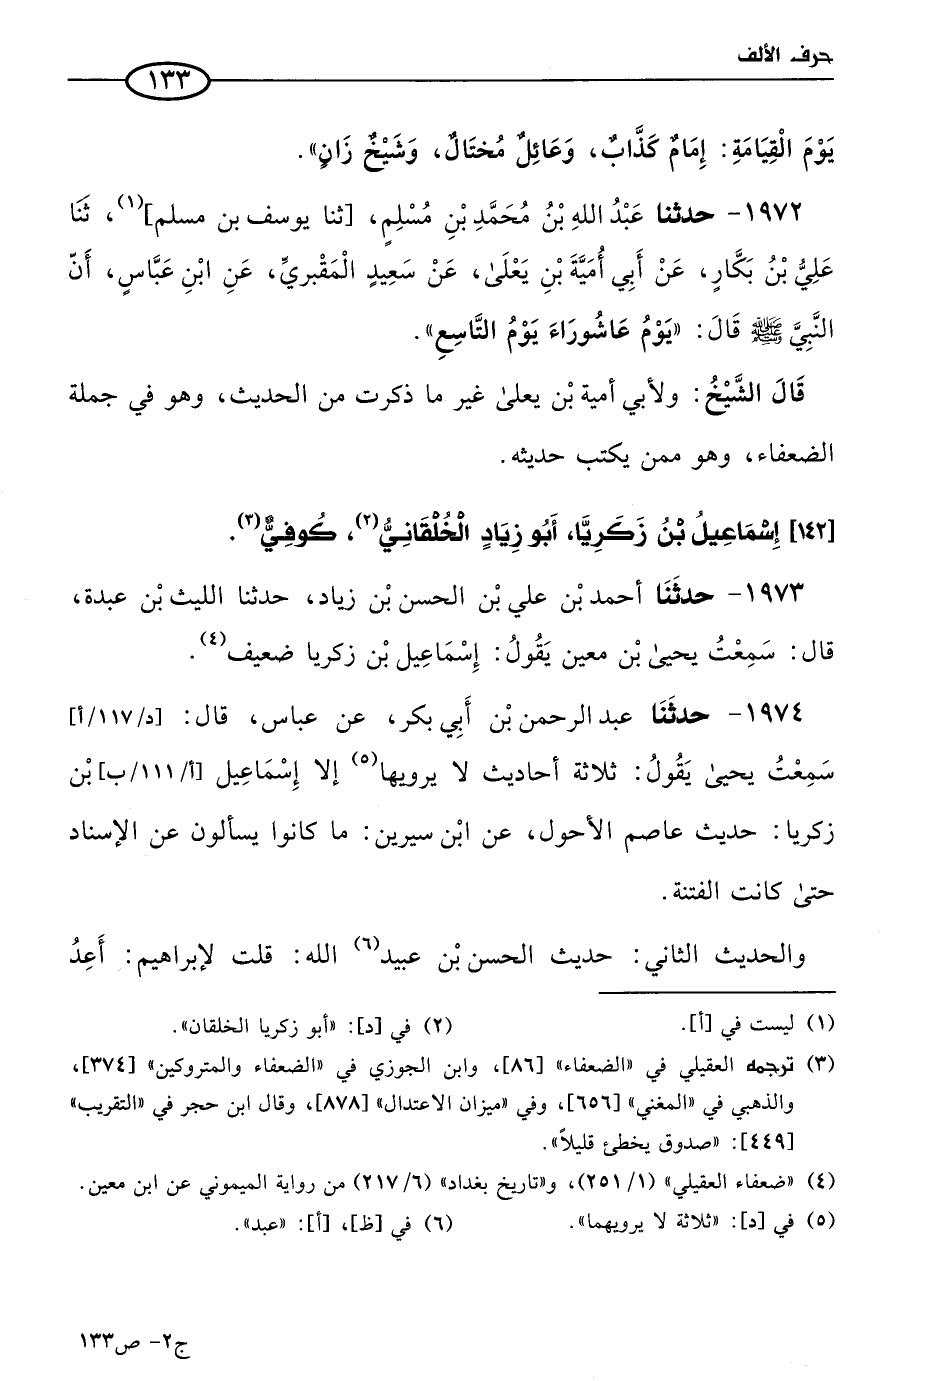 حرف الألف
١٣٣
يَوْمَ الْقِيَامَةِ: إِمَامٌ كَذَّابٌ، وَعَائِلٌ مُختَالٌ، وَشَيْخٌ زَانٍ».
١٩٧٢- حدثنا عَبْدُ اللهِ بْنُ مُحَمَّدِ بْنِ مُسْلِمٍ، [ثنا يوسف بن مسلم](١)، ثَنَا
عَلِيُّ بْنُ بَكَّارٍ، عَنْ أَبِي أُمَيَّةَ بْنِ يَعْلَىٰ، عَنْ سَعِيدٍ الْمَقْبريِّ، عَنِ ابْنِ عَبَّاسٍ، أَنَّ
النَّبِيَّ ﷺ قَالَ: «يَوْمُ عَاشُورَاءَ يَوْمُ التَّاسِعِ».
قَالَ الشَّيْخُ: ولأبي أمية بْن يعلىٰ غير ما ذكرت من الحديث، وهو في جملة
الضعفاء، وهو ممن يكتب حديثه.
[١٤٢] إِسْمَاعِيلُ بْنُ زَكَرِيَّا، أَبُو زِيَادٍ الْخُلْقَانِيُّ(٢)، كُوفِيٌّ(٣).
١٩٧٣- حدثَنَا أحمد بْن علي بْن الحسن بْن زياد، حدثنا الليث بْن عبدة،
قال: سَمِعْتُ يحيىٰ بْن معين يَقُولُ: إِسْمَاعِيل بْن زكريا ضعيف(٤).
١٩٧٤- حدثَنَا عبد الرحمن بْن أَبي بكر، عن عباس، قال: [د/١١٧/أ]
سَمِعْتُ يحيىٰ يَقُولُ: ثلاثة أحاديث لا يرويها(٥) إلا إِسْمَاعِيل [أ/١١١/ب] بْن
زكريا: حديث عاصم الأحول، عن ابْن سيرين: ما كانوا يسألون عن الإسناد
حتىٰ كانت الفتنة.
والحديث الثاني: حديث الحسن بْن عبيد(٦) الله: قلت لإبراهيم: أَعِدُ
(١) ليست في [أ]. (٢) في [د]: «أبو زكريا الخلقان».
(٣) ترجمه العقيلي في «الضعفاء» [٨٦]، وابن الجوزي في «الضعفاء والمتروكين» [٣٧٤]،
والذهبي في «المغني» [٦٥٦]، وفي «ميزان الاعتدال» [٨٧٨]، وقال ابن حجر في «التقريب»
[٤٤٩]: «صدوق يخطئ قليلاً».
(٤) «ضعفاء العقيلي» (١/ ٢٥١)، و«تاريخ بغداد» (٦/ ٢١٧) من رواية الميموني عن ابن معين.
(٥) في [د]: «ثلاثة لا يرويهما». (٦) في [ظ]، [أ]: «عبد».
ج٢- ص١٣٣